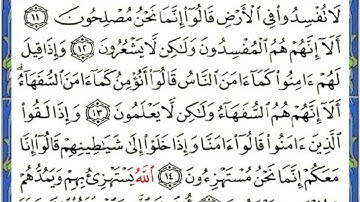 لَا تُفْسِدُوا۟ فِى ٱلْأَرْضِ قَالُوٓا۟ إِنَّمَا نَحْنُ مُصْلِحُونَ ١١
أَلَآ إِنَّهُمْ هُمُ ٱلْمُفْسِدُونَ وَلَٰكِن لَّا يَشْعُرُونَ ١٢ وَإِذَا قِيلَ
لَهُمْ ءَامِنُوا۟ كَمَآ ءَامَنَ ٱلنَّاسُ قَالُوٓا۟ أَنُؤْمِنُ كَمَآ ءَامَنَ ٱلسُّفَهَآءُ
أَلَآ إِنَّهُمْ هُمُ ٱلسُّفَهَآءُ وَلَٰكِن لَّا يَعْلَمُونَ ١٣ وَإِذَا لَقُوا۟
ٱلَّذِينَ ءَامَنُوا۟ قَالُوٓا۟ ءَامَنَّا وَإِذَا خَلَوْا۟ إِلَىٰ شَيَٰطِينِهِمْ قَالُوٓا۟ إِنَّا
مَعَكُمْ إِنَّمَا نَحْنُ مُسْتَهْزِءُونَ ١٤ ٱللَّهُ يَسْتَهْزِئُ بِهِمْ وَيَمُدُّهُمْ